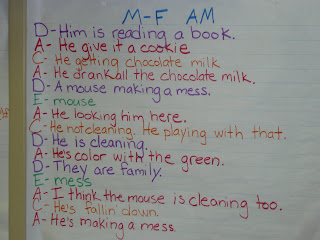 M-F AM
D- Him is reading a book.
A- He give it a cookie
C- He getting chocolate milk
A- He drank all the chocolate milk.
D- A mouse making a mess.
E- mouse
A- He looking him here.
C- He not cleaning. He playing with that.
D- He is cleaning.
A- He's color with the green.
D- They are family.
E- mess
A- I think the mouse is cleaning too.
C- He's fallin' down.
A- He's making a mess.